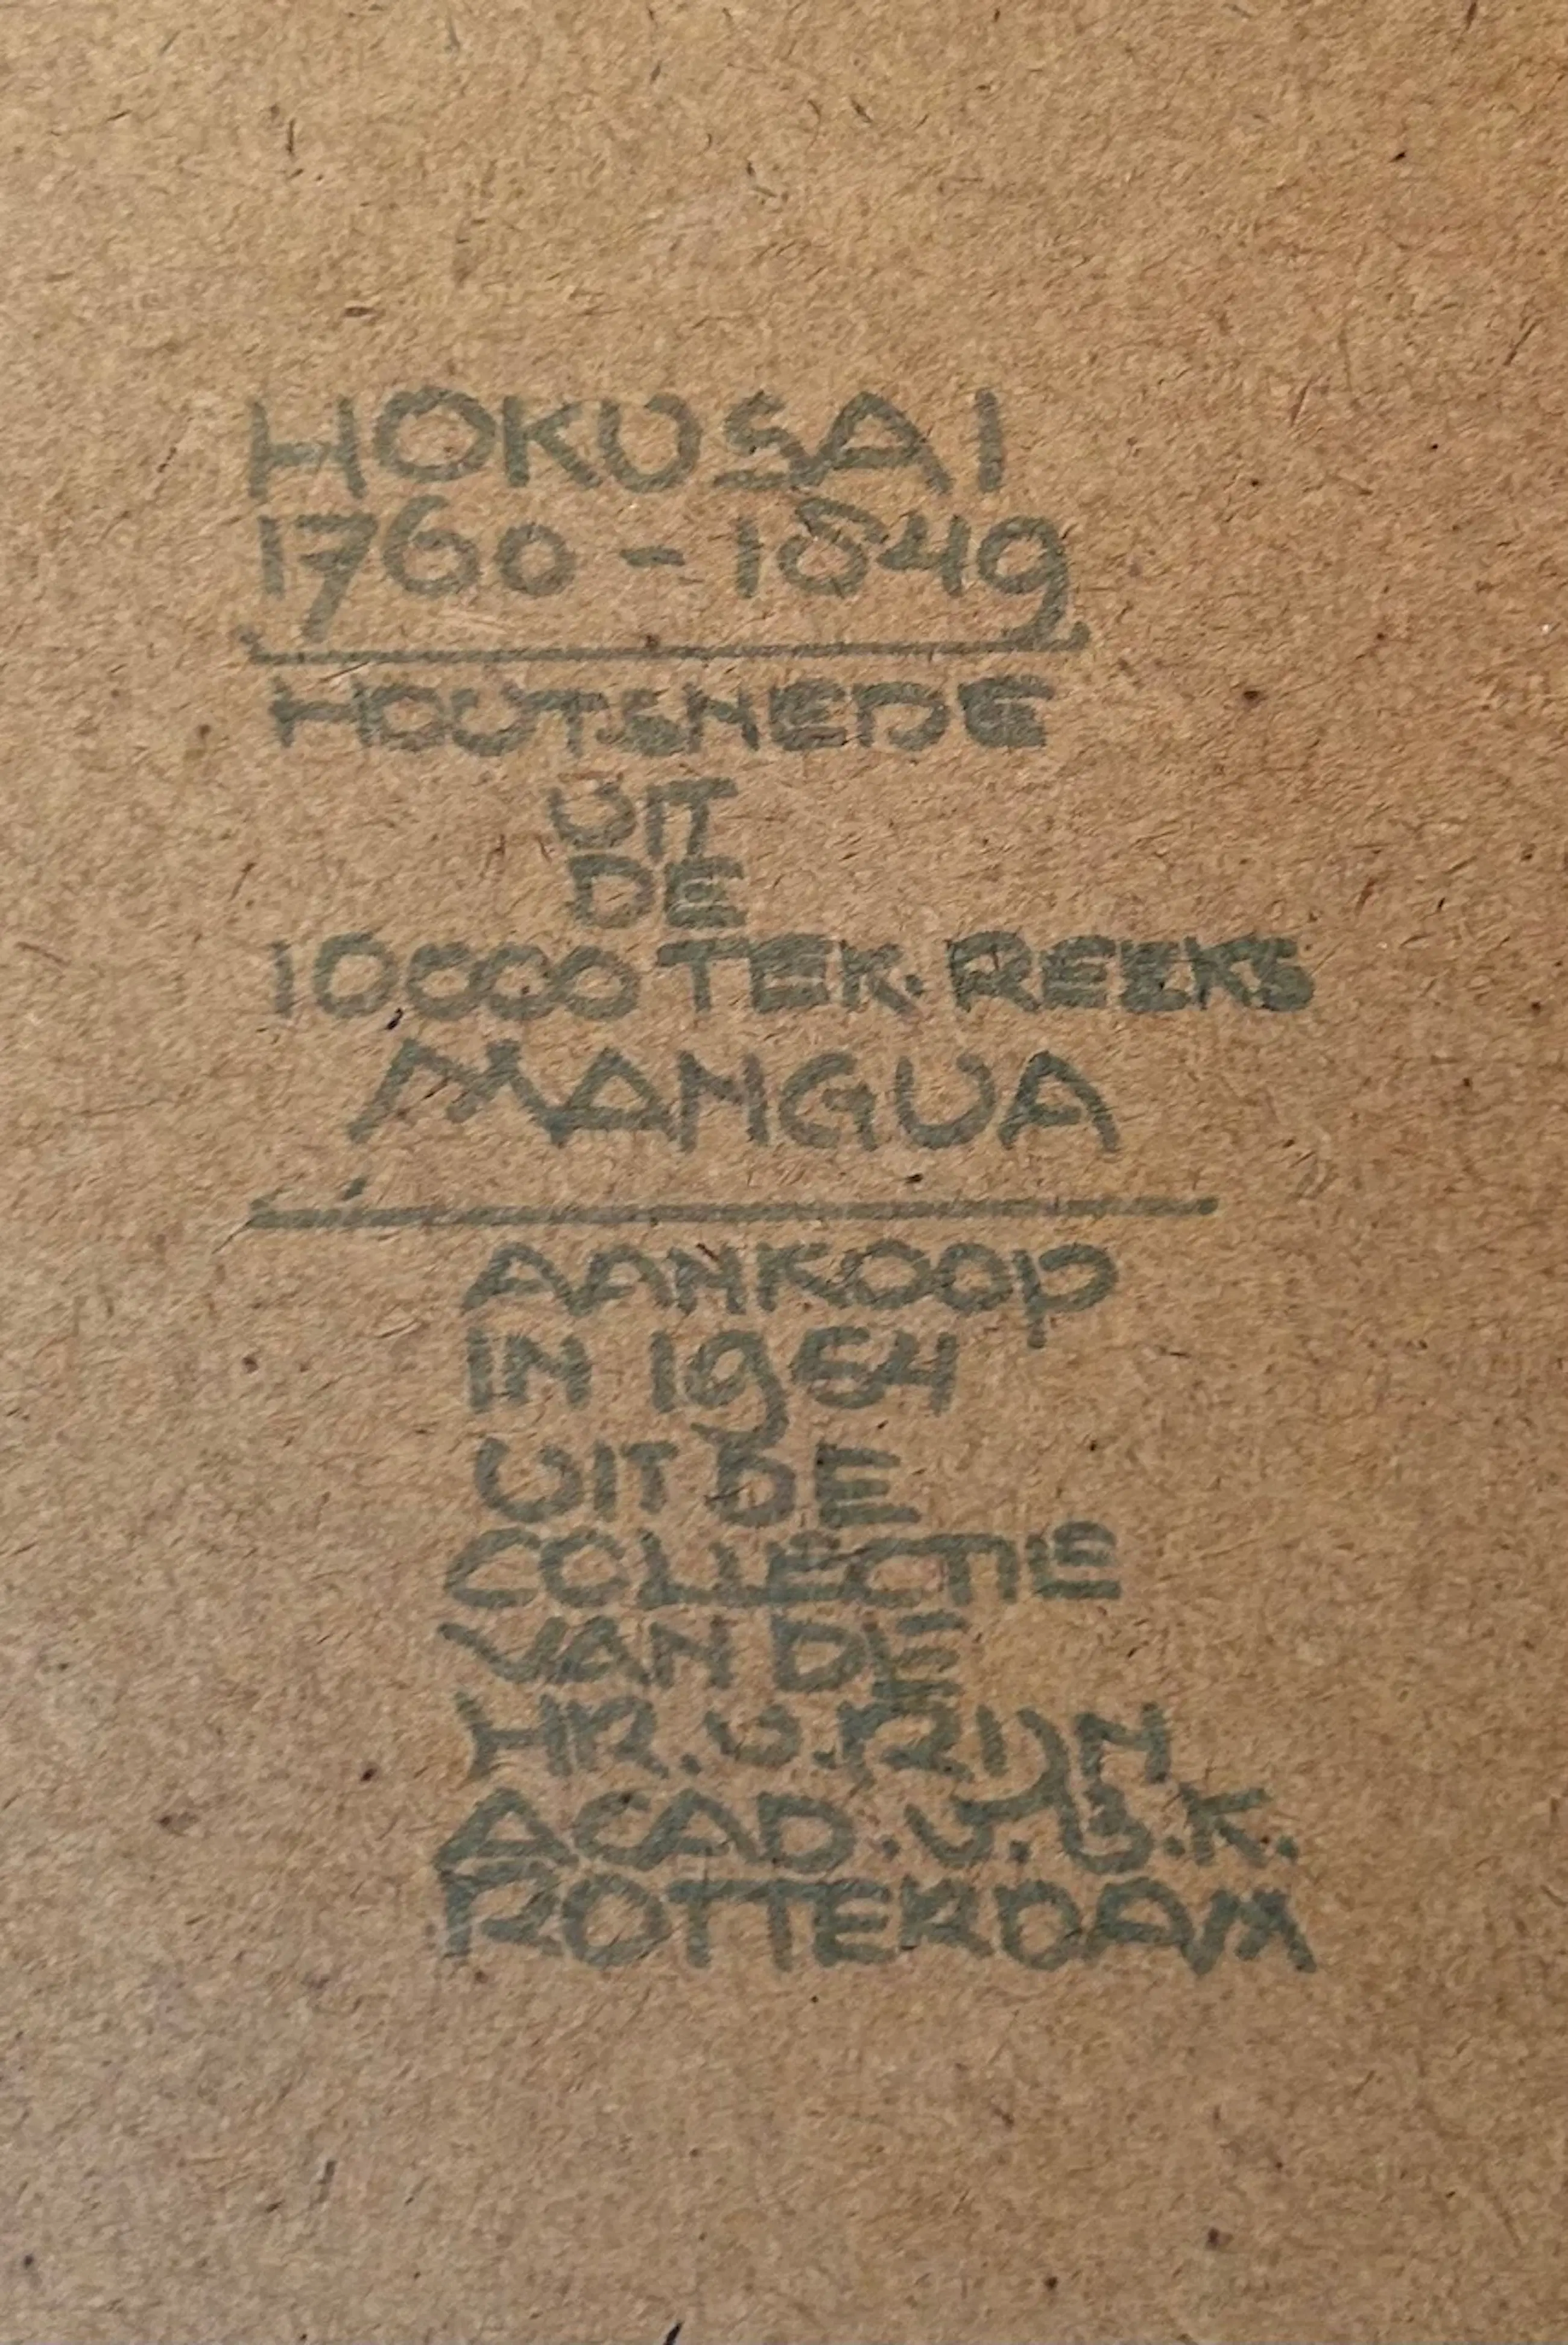 HOKUSAI
1760 - 1849
HOUTSNEDE
UIT
DE
10000 TEK. REEKS
MANGUA
AANKOOP
IN 1954
UIT DE
COLLECTIE
VAN DE
HR. V. RIJN
ACAD. V. B. K.
ROTTERDAM